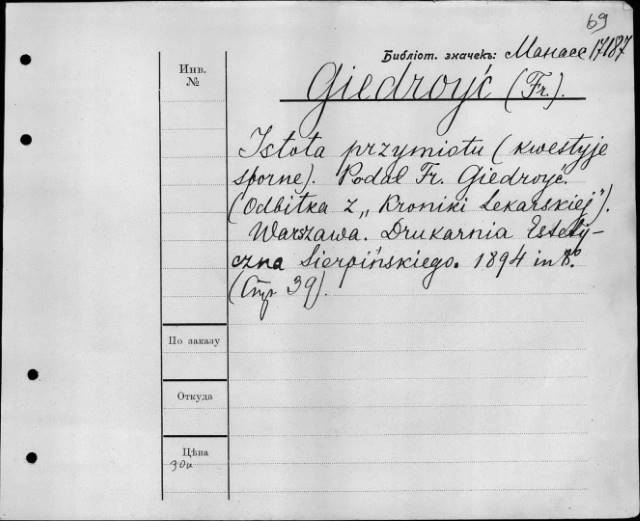 69
Библіот. значекъ: Манасе 17187
Инв.
№
Giedroyć (Fr.).
Istota przymiotu (kwestyje
sporne). Podał Fr. Giedroyć.
(Odbitka z „Kroniki Lekarskiej").
Warszawa. Drukarnia Estety-
czna Sierpińskiego. 1894 in 8°.
(Стр 39).
По заказу
Откуда
Цѣна